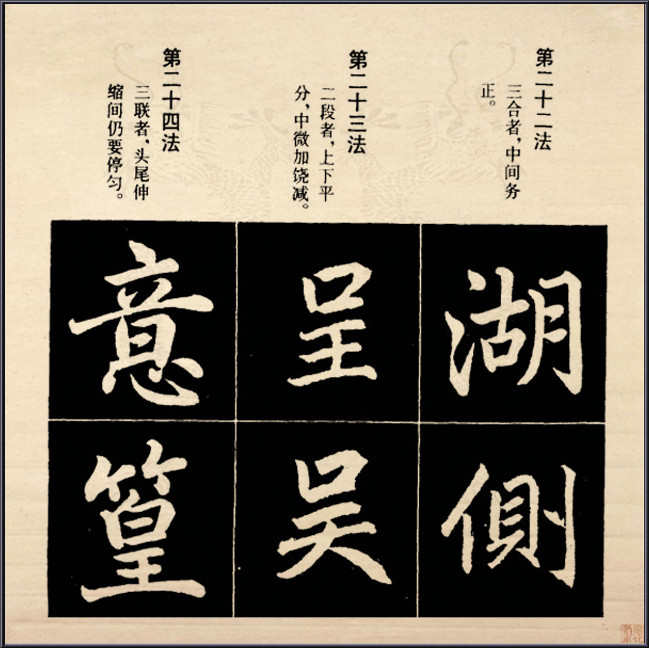 第二十二法
三合者，中间务
正。
第二十三法
二段者，上下平
分，中微加饶减。
第二十四法
三联者，头尾伸
缩间仍要停匀。
湖
側
呈
吴
意
篁